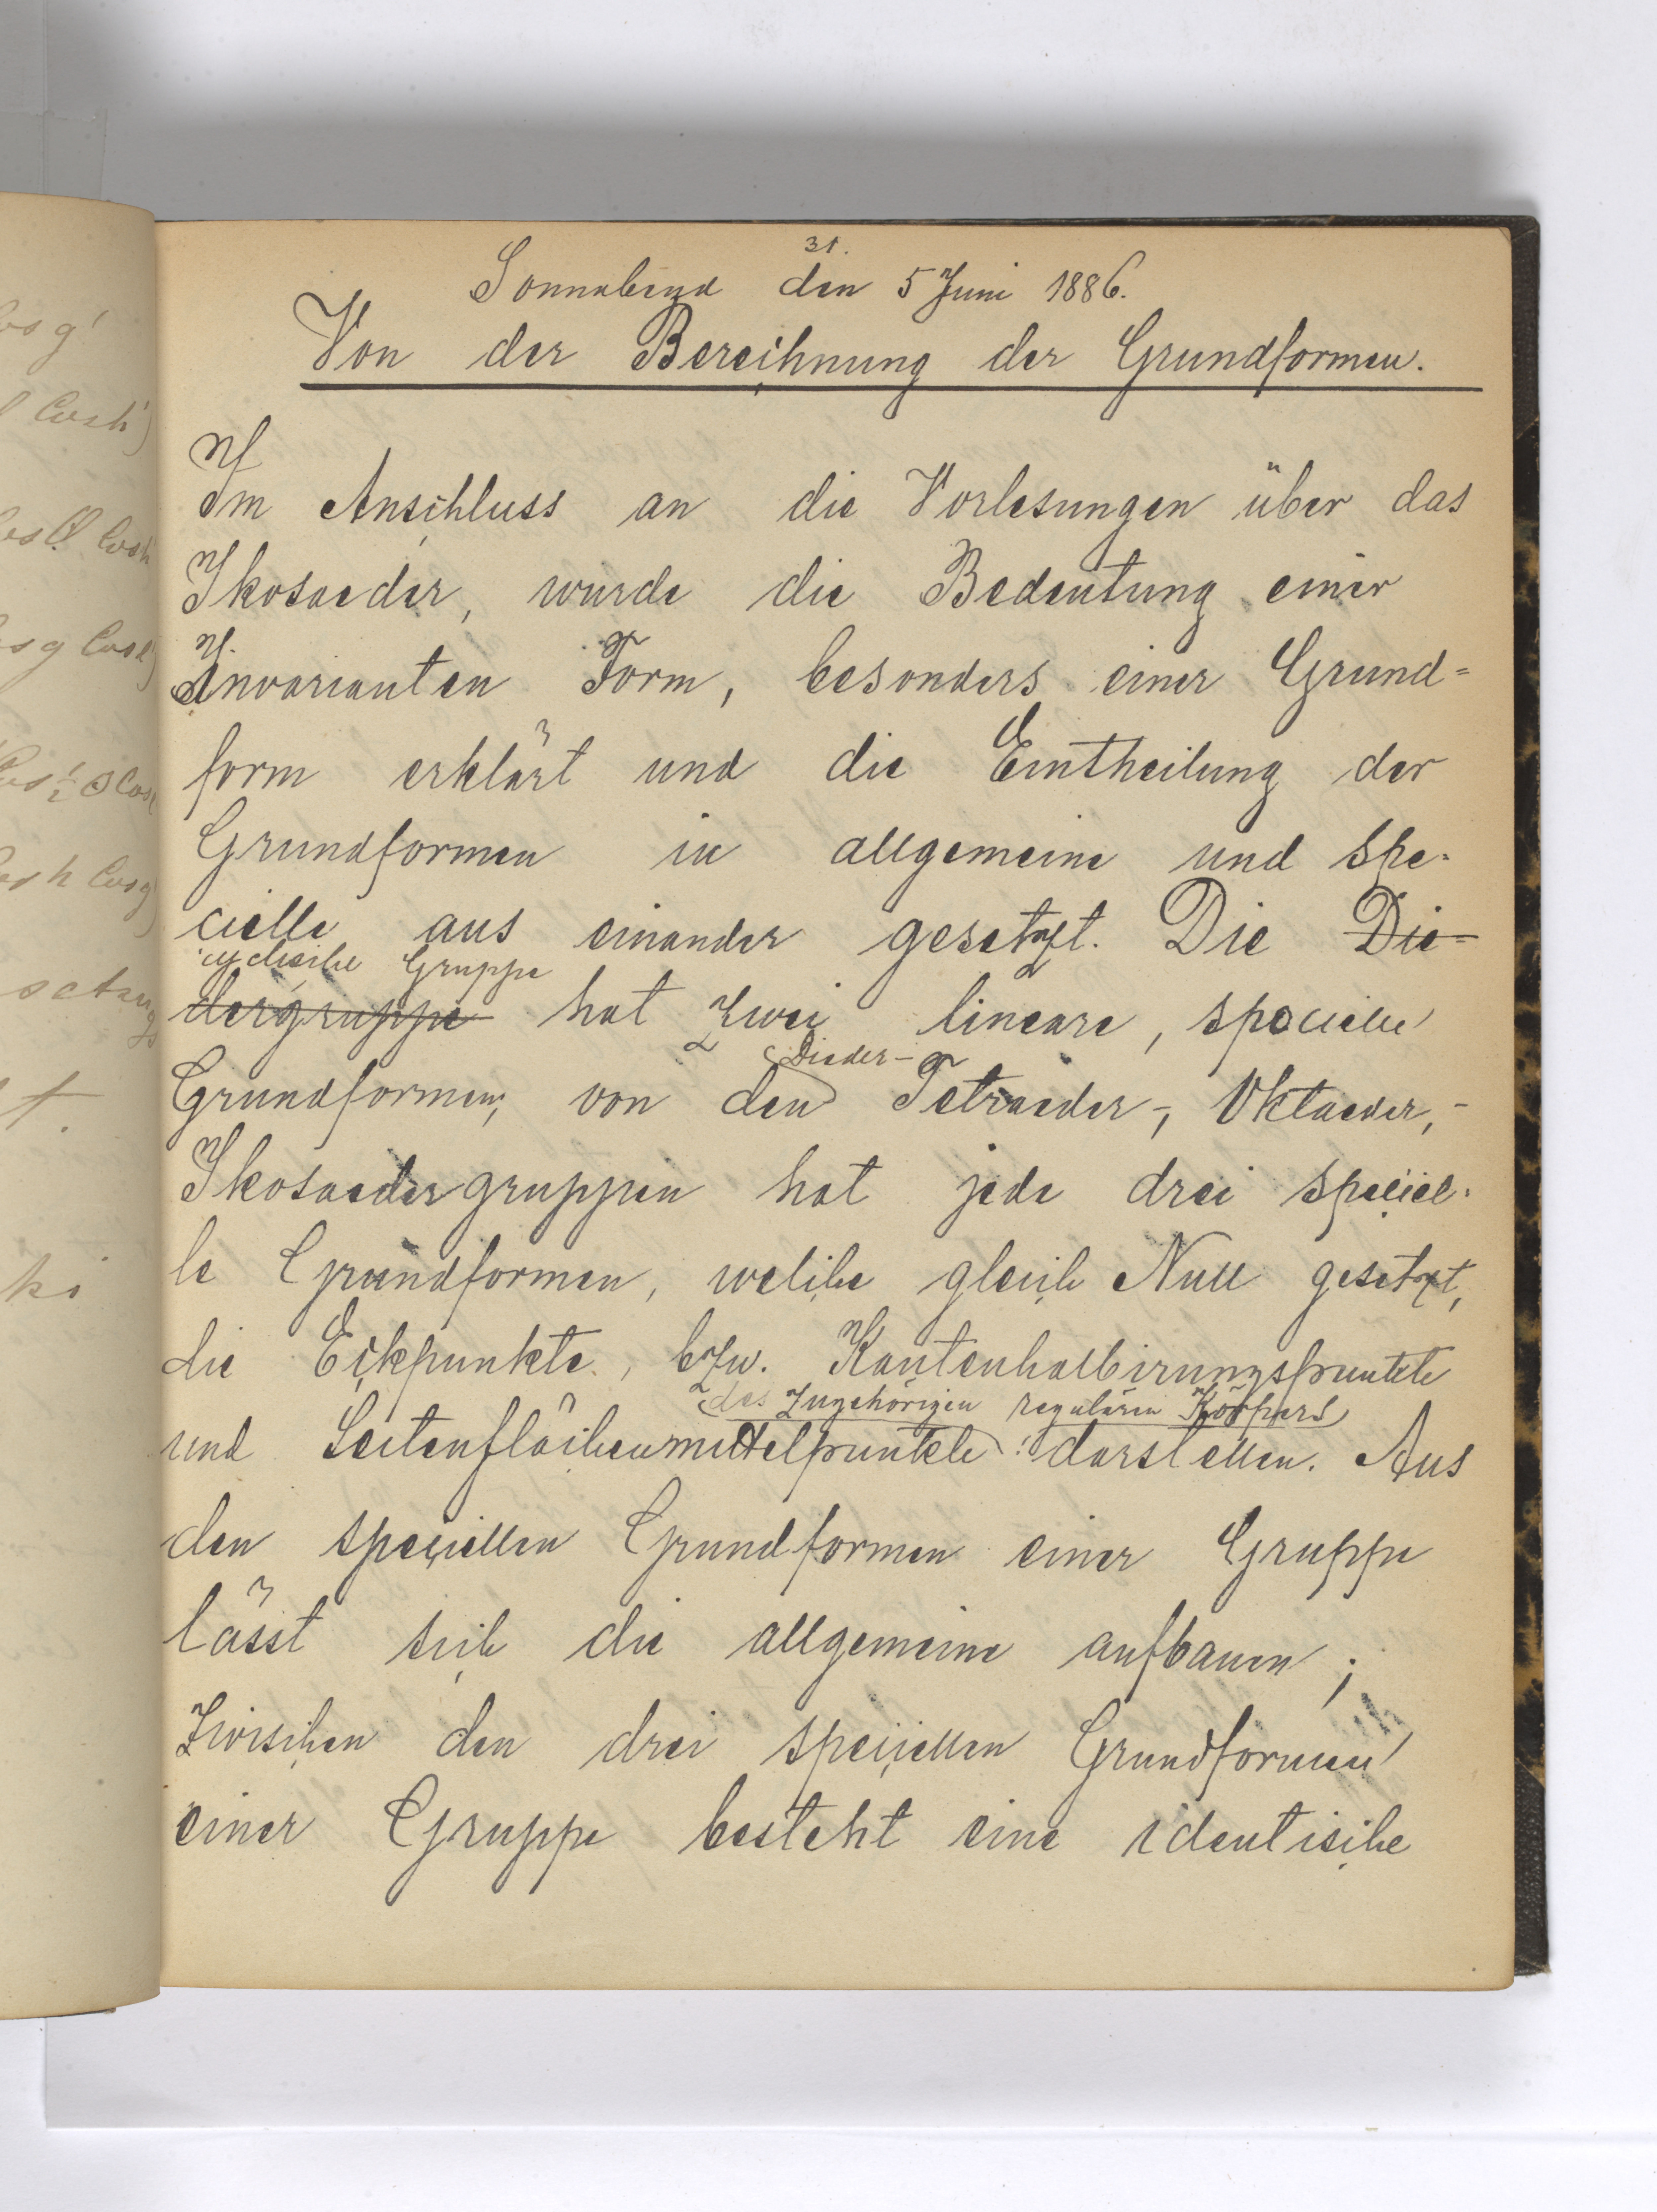 31.
Sonnabend den 5 Juni 1886.
Von der Berechnung der Grundformen.
Im Anschluss an die Vorlesungen über das
Ikosaeder, wurde die Bedeutung einer
Invarianten Form, besonders einer Grund=
form erklärt und die Eintheilung der
Grundformen in allgemeine und spe-
cielle aus einander gesetzt. Die Die-
cyclische Gruppe
dergruppe hat zwei lineare, specielle
Dieder-
Grundformen, von den Tetraeder-, Oktaeder,-
Ikosaedergruppen hat jede drei speciel-
le Grundformen, welche gleich Null gesetzt,
die Eckpunkte, bzw. Kantenhalbirungspunkte
des zugehörigen regulären Körpers
und Seitenflächenmittelpunkte darstellen. Aus
den speciellen Grundformen einer Gruppe
lässt sich die allgemeine aufbauen;
Zwischen den drei speciellen Grundformen
einer Gruppe besteht eine identische